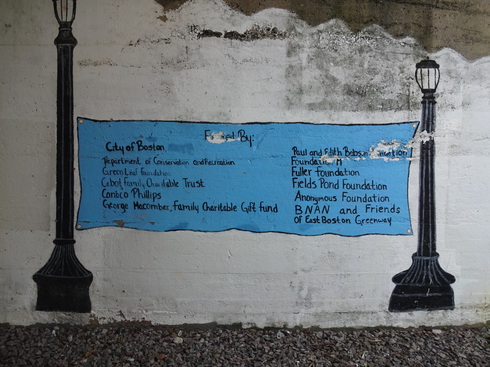 By:
City of Boston
Department of Conservation and Recreation
Green Leaf Foundation
Cabot Family Charitable Trust
Conoco Phillips
George Macomber, Family Charitable Gift Fund
Paul and Edith Babson
Foundation
Fuller Foundation
Fields Pond Foundation
Anonymous Foundation
BNAN and Friends
of East Boston Greenway